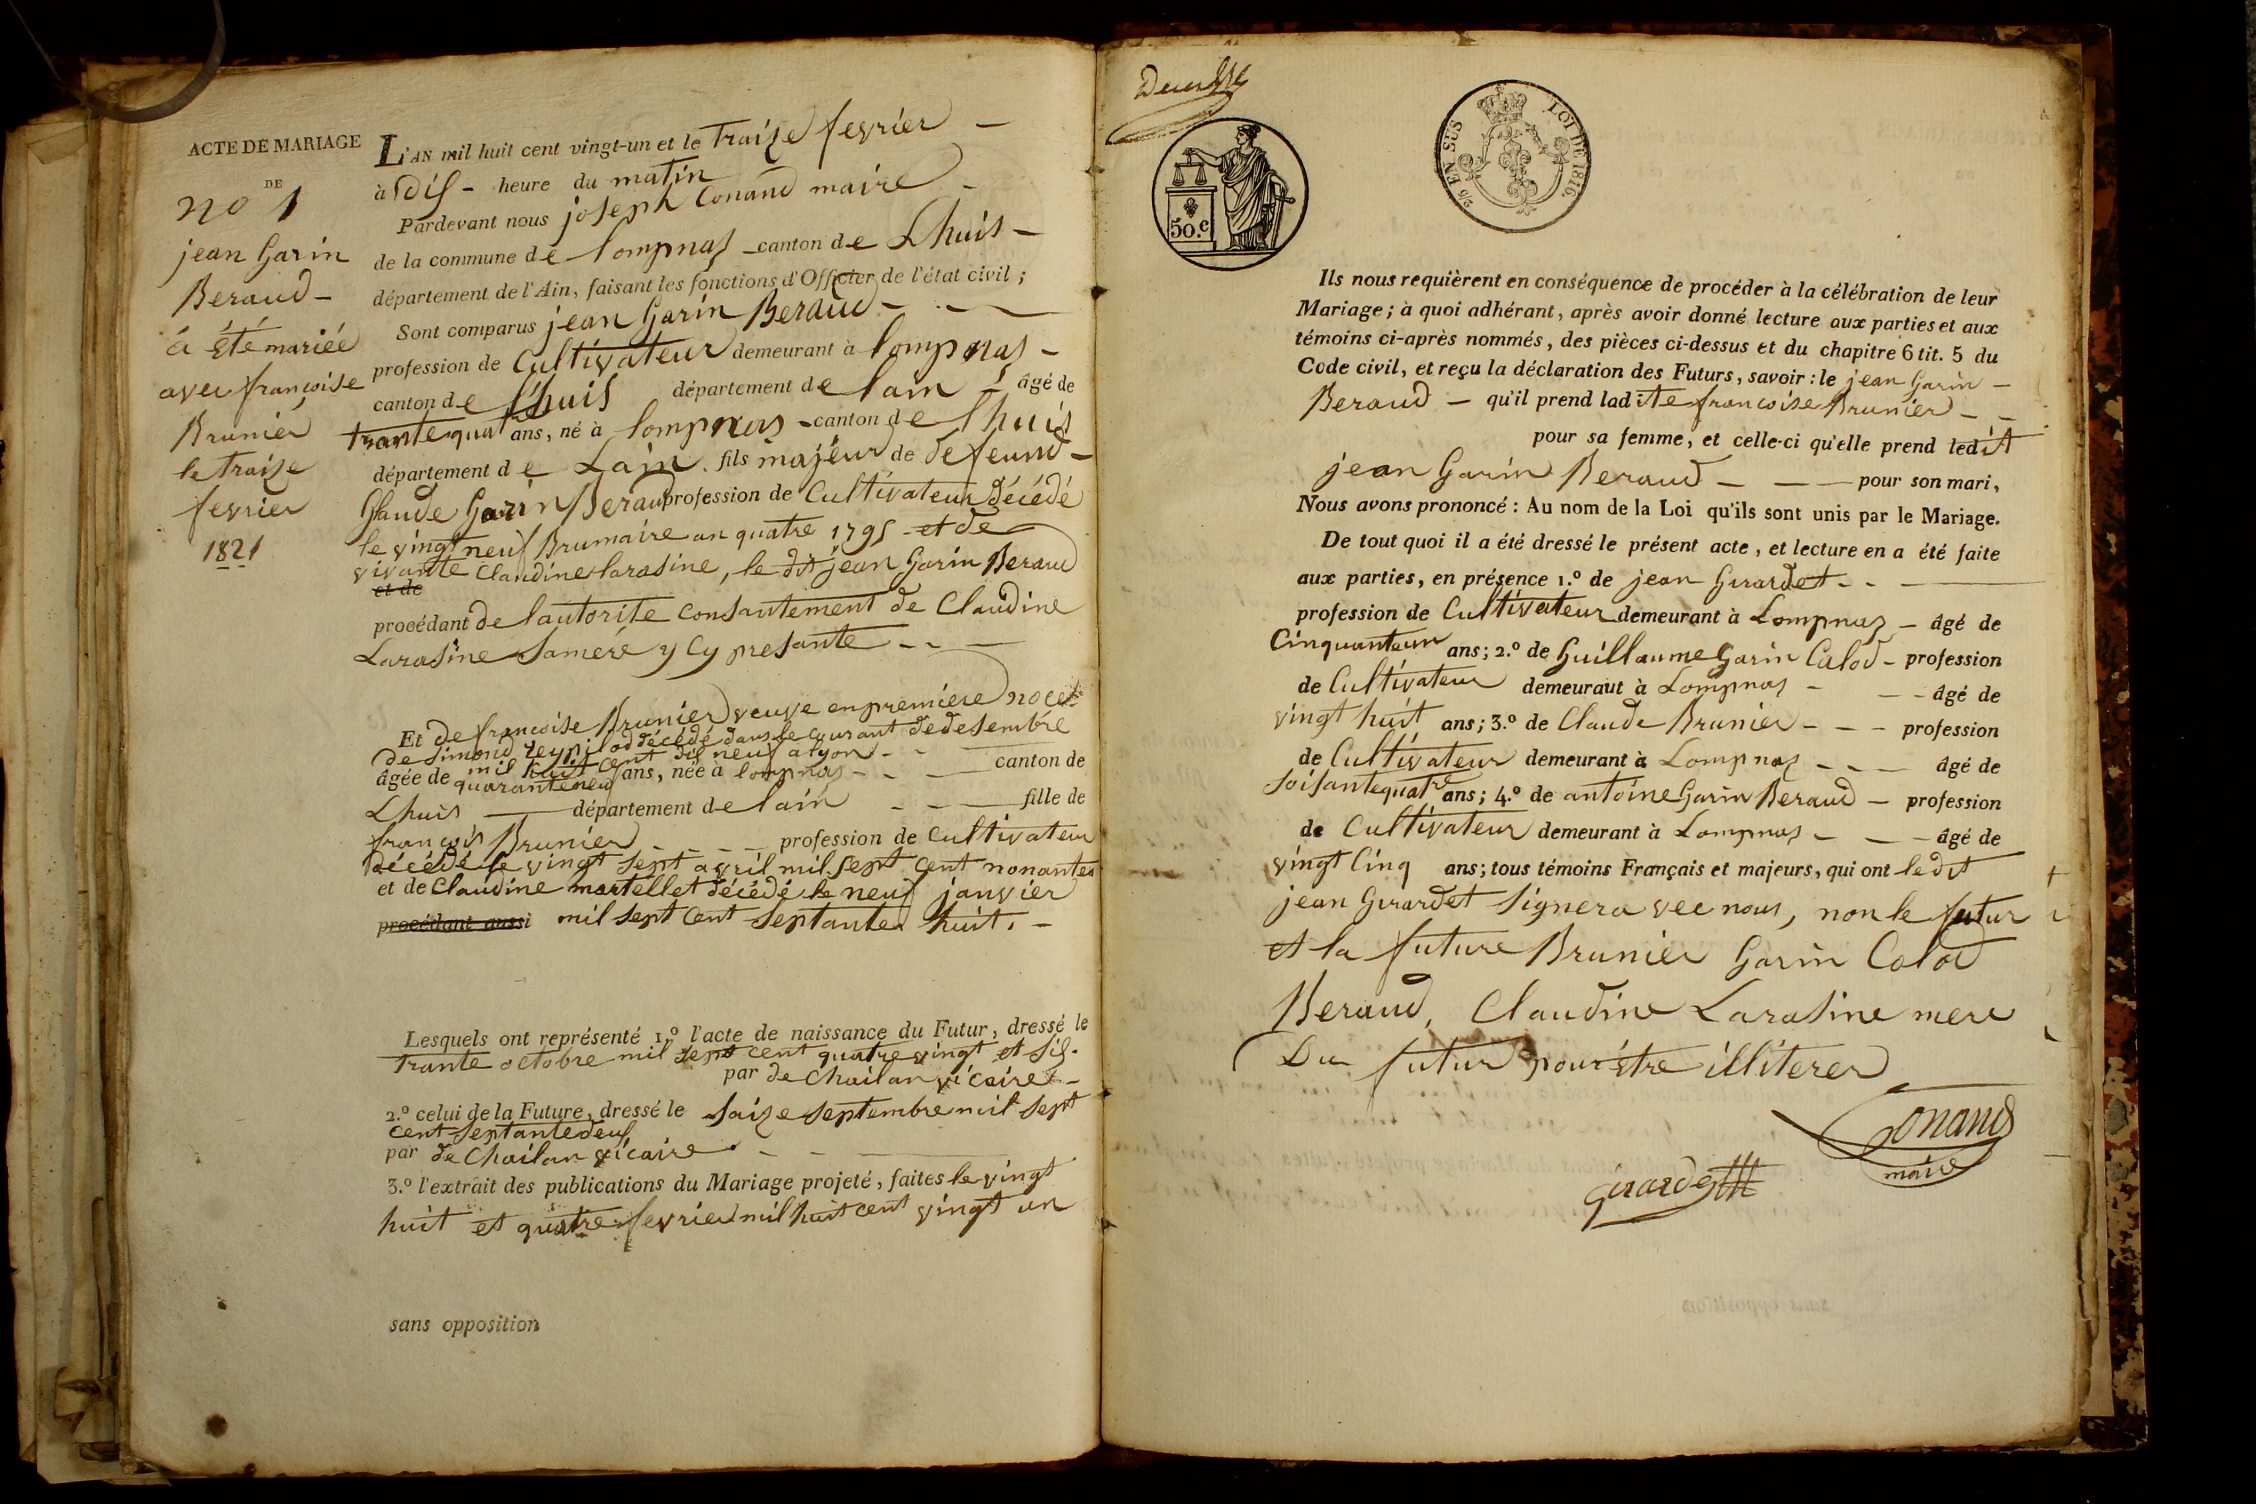 ACTE DE MARIAGE
DE
no 1
jean Garin
Beraud -
á été mariéé
avec françoise
Brunier
le traize
fevrier
1821
L'AN mil huit cent vingt-un et le traize fevrier -
à dis - heure du matin
Pardevant nous joseph Conand maire -
de la commune de lompnas - canton de Lhuis -
département de l'Ain, faisant les fonctions d'Officier de l'état civil ;
Sont comparus jean Garin Beraud - -
profession de Cultivateur demeurant à lompnas -
canton de lhuis département de lain - âgé de
trante quat ans, né à lompnas - canton de lhuis
département de Lain. fils majeur de defeund -
Glaude Garin Beraud profession de Cultivateur décédé
le vingt neuf Brumaire an quatre 1795 - et de
vivante Claudine larasine, le dit jean Garin Beraud
et de
procédant de lautorite consantement de Claudine
Larasine Samere y Cy presante - - -
Et de françoise Brunier veuve en premiere noces
de Simond reynilod décédé dans le Courant dedesembre
mil huit cent dis neuf a lyon - -
âgée de quaranteneuf ans, née à lompnas - - canton de
Lhuis département de lain - - fille de
françois Brunier - - - profession de Cultivateur
décédé le vingt sept avril mil sept cent nonantes
et de Claudine martellet décédé le neuf janvier
procédant aussi mil sept cent septante huit. -
Lesquels ont représenté 1.º l'acte de naissance du Futur, dressé le
trante octobre mil sept cent quatre vingt et sis.
par de Chailan vicaire -
2.º celui de la Future, dressé le saize septembre mil sept
cent septantedeus
par de Chailan vicaire - -
3.º l'extrait des publications du Mariage projeté, faites le vingt
huit et quatre fevrier mil huit cent vingt un
sans opposition
50.c
25 EN SUS
LOI DE 1816.
Ils nous requièrent en conséquence de procéder à la célébration de leur
Mariage ; à quoi adhérant, après avoir donné lecture aux parties et aux
témoins ci-après nommés, des pièces ci-dessus et du chapitre 6 tit. 5 du
Code civil, et reçu la déclaration des Futurs, savoir : le jean Garin -
Beraud - qu'il prend ladite francoise Brunier - -
pour sa femme, et celle-ci qu'elle prend ledit
jean Garin Beraud - - pour son mari,
Nous avons prononcé : Au nom de la Loi qu'ils sont unis par le Mariage.
De tout quoi il a été dressé le présent acte, et lecture en a été faite
aux parties, en présence 1.º de jean Girardet - -
profession de Cultivateur demeurant à Lompnas - âgé de
Cinquanteun ans ; 2.º de Guillaume Garin Calod - profession
de Cultivateur demeurant à Lompnas - - - âgé de
vingt huit ans ; 3.º de Claude Brunier - - - profession
de Cultivateur demeurant à Lompnas - - - âgé de
soisantequatr ans ; 4.º de antoine Garin Beraud - profession
de Cultivateur demeurant à Lompnas - - - âgé de
vingt Cinq ans ; tous témoins Français et majeurs, qui ont ledit
jean Girardet Signera vec nous, non le futur
et la future Brunier Garin Calod
Beraud, Claudine Larasine mere
Du futur pour être illiterer
Conand
maire
girardett
sans opposition